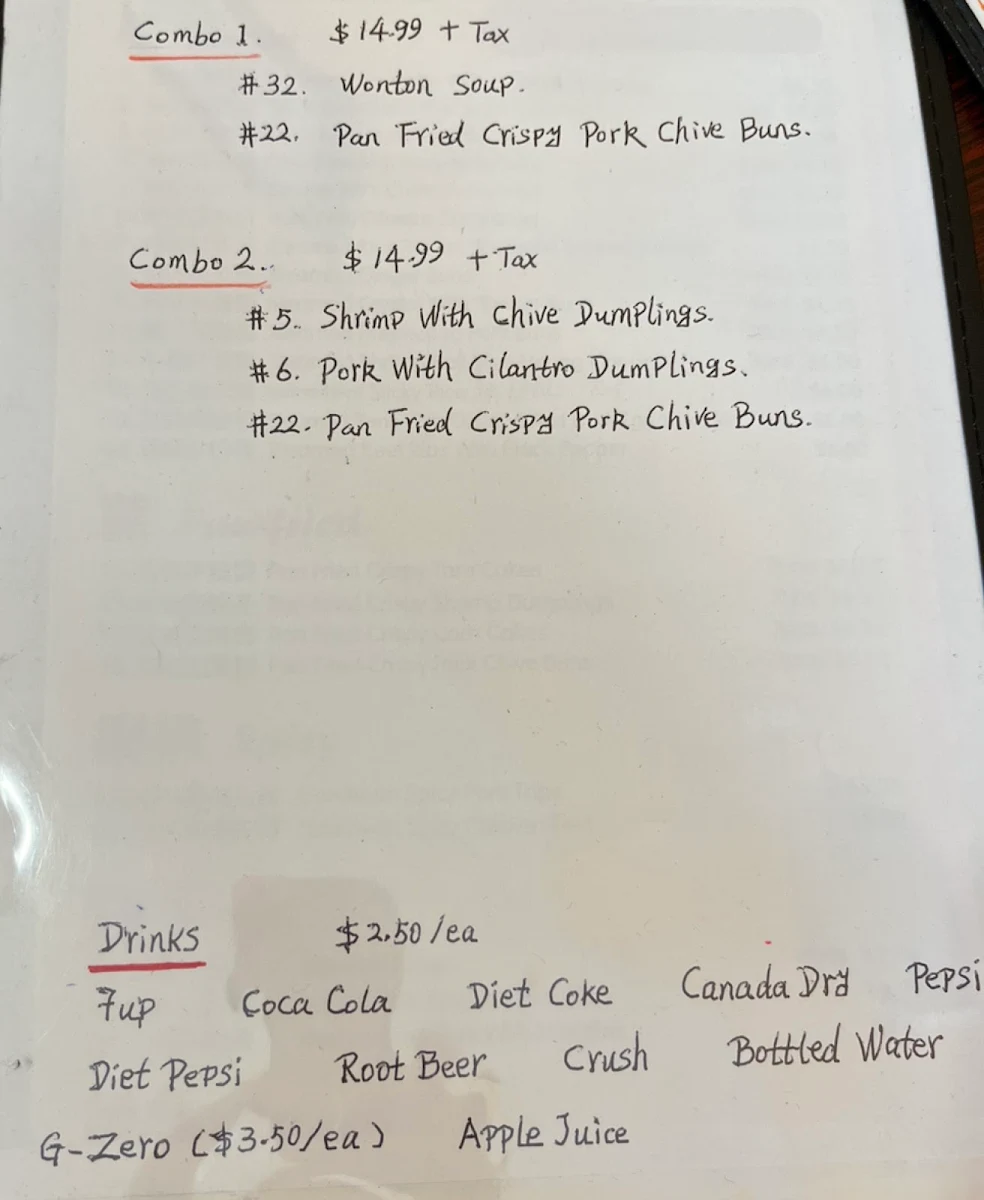 Combo 1. $14.99 + Tax
#32. Wonton Soup.
#22. Pan Fried Crispy Pork Chive Buns.
Combo 2.. $14.99 + Tax
#5.. Shrimp With Chive Dumplings.
#6. Pork With Cilantro Dumplings.
#22. Pan Fried Crispy Pork Chive Buns.
Drinks $2.50/ea
7up Coca Cola Diet Coke Canada Dry Pepsi
Diet Pepsi Root Beer Crush Bottled Water
G-Zero ($3.50/ea) Apple Juice